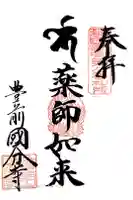 奉拝
薬師如来
豊前國分寺